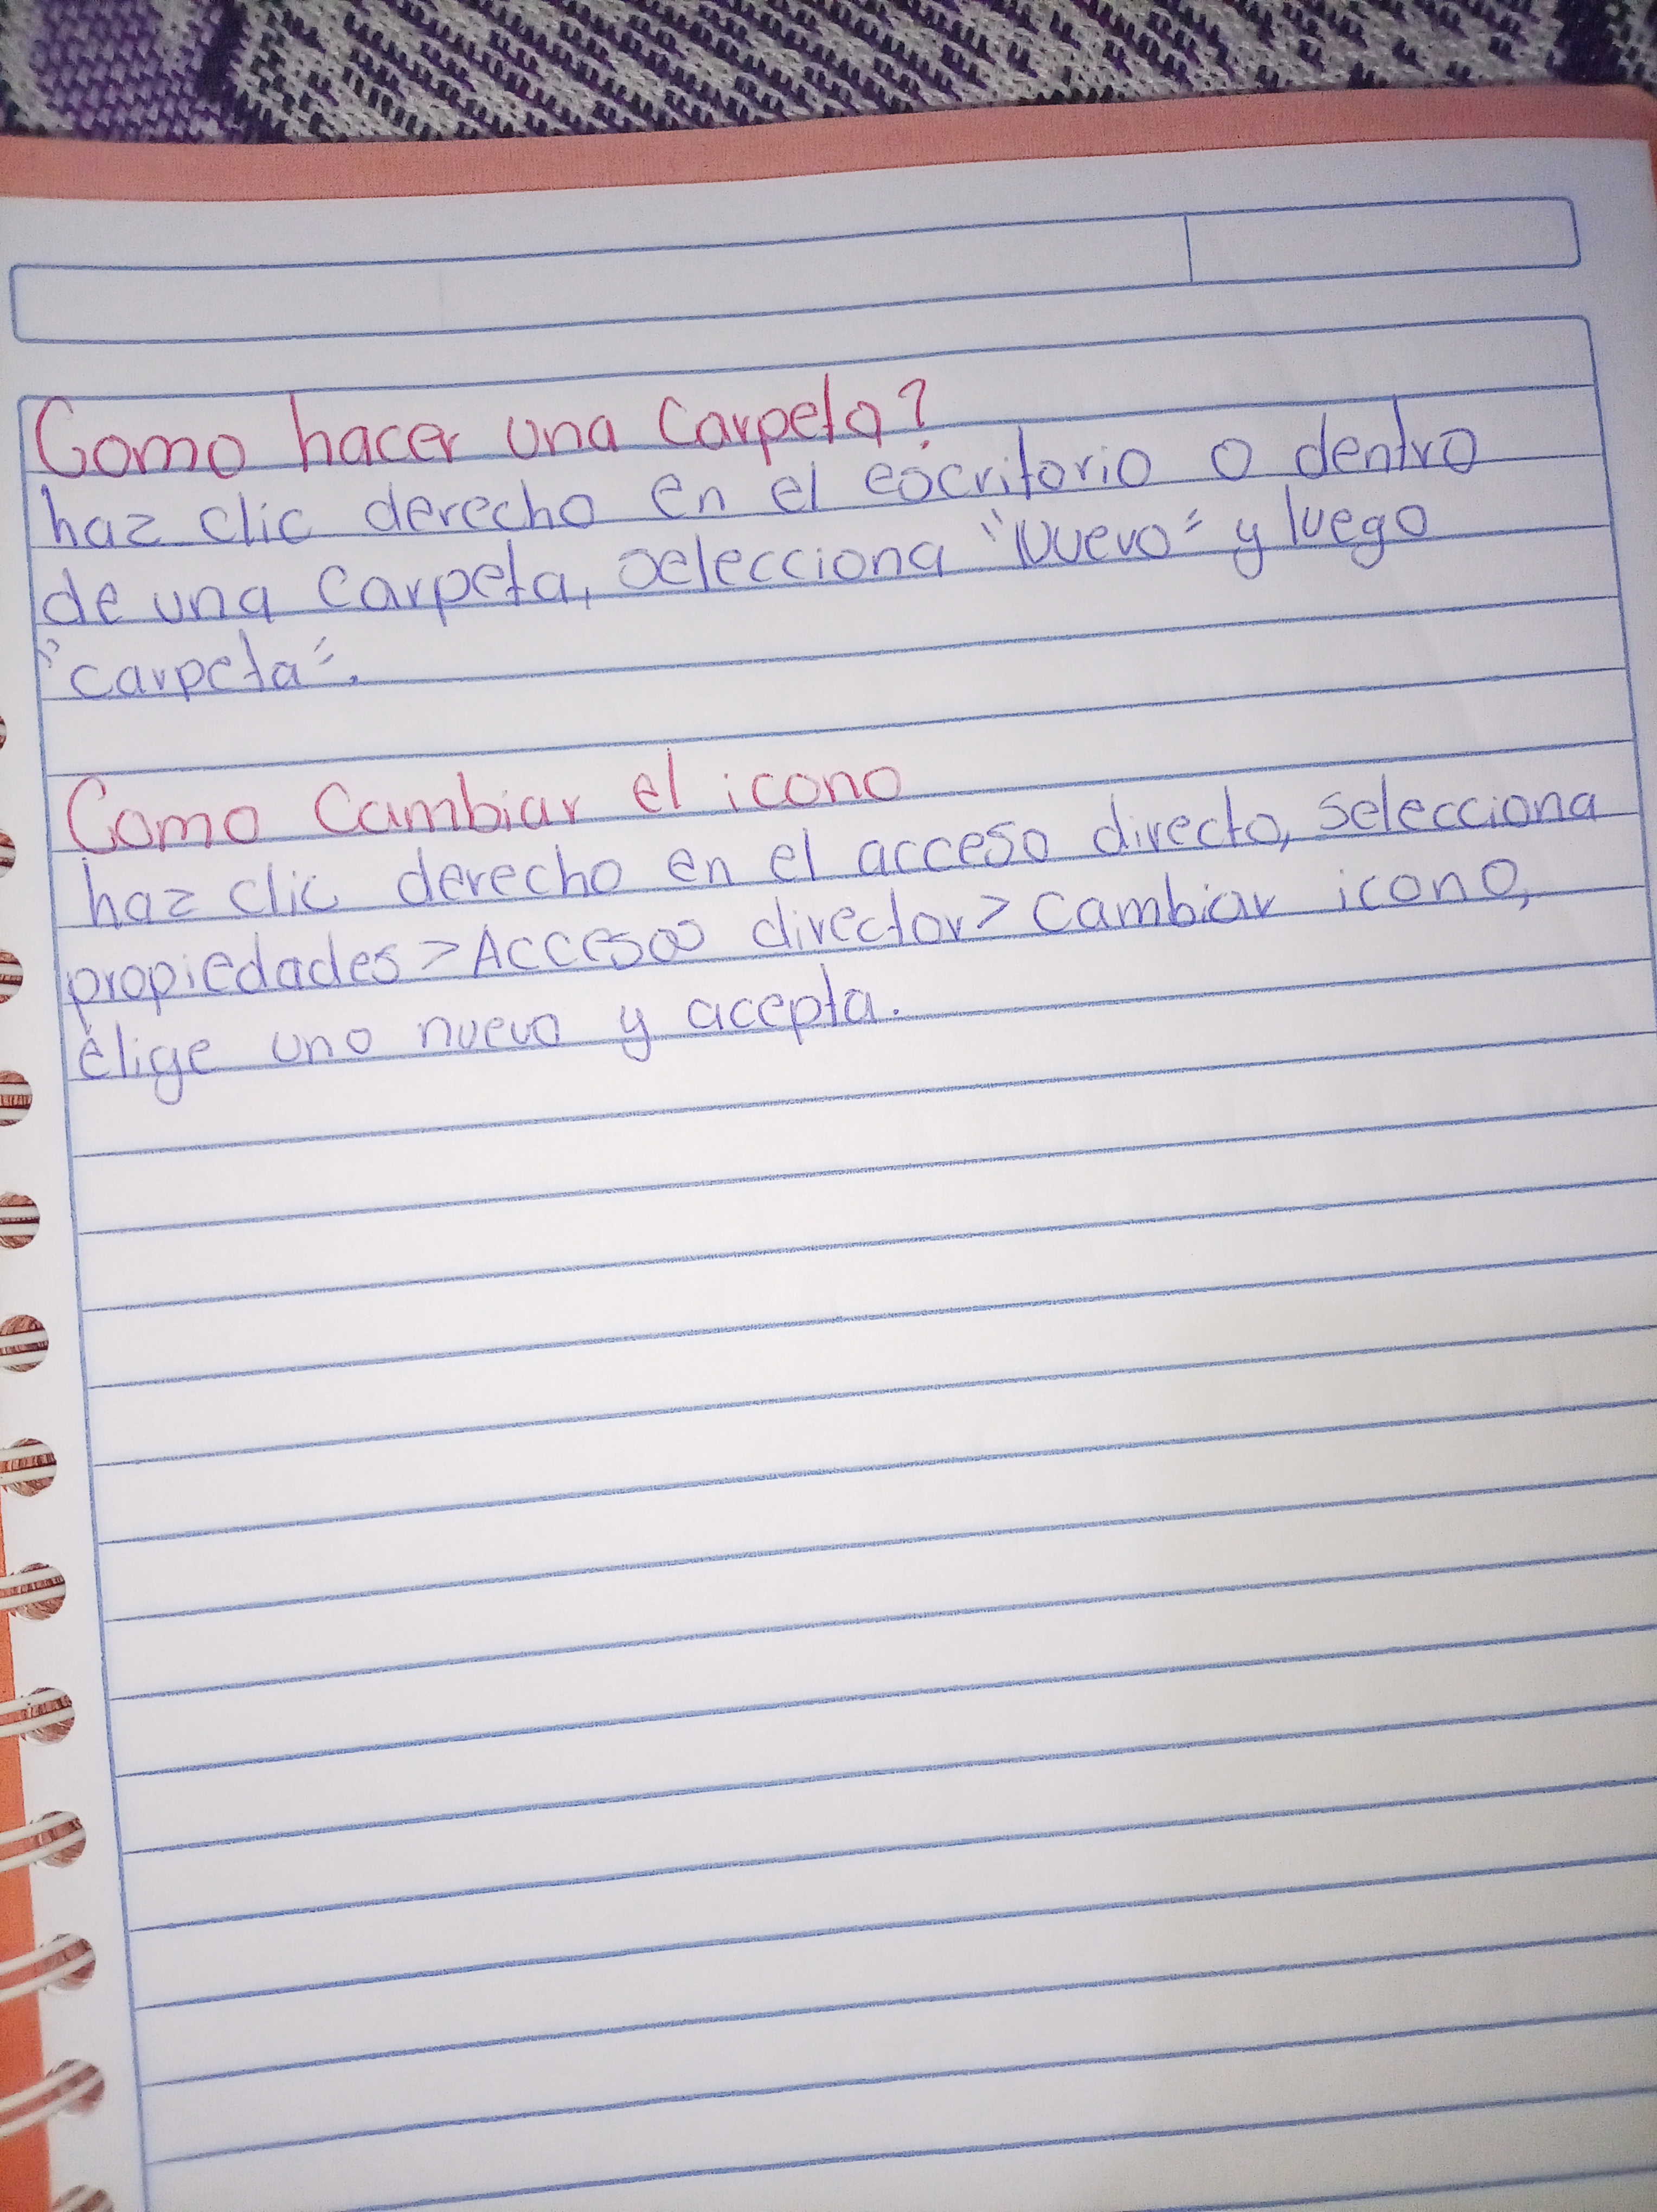 Como hacer una Carpeta?
haz clic derecho en el escritorio o dentro
de una carpeta, selecciona "Nuevo" y luego
"carpeta".
Como Cambiar el icono
haz clic derecho en el acceso directo, selecciona
propiedades > Accesos director > Cambiar icono,
elige uno nuevo y acepta.